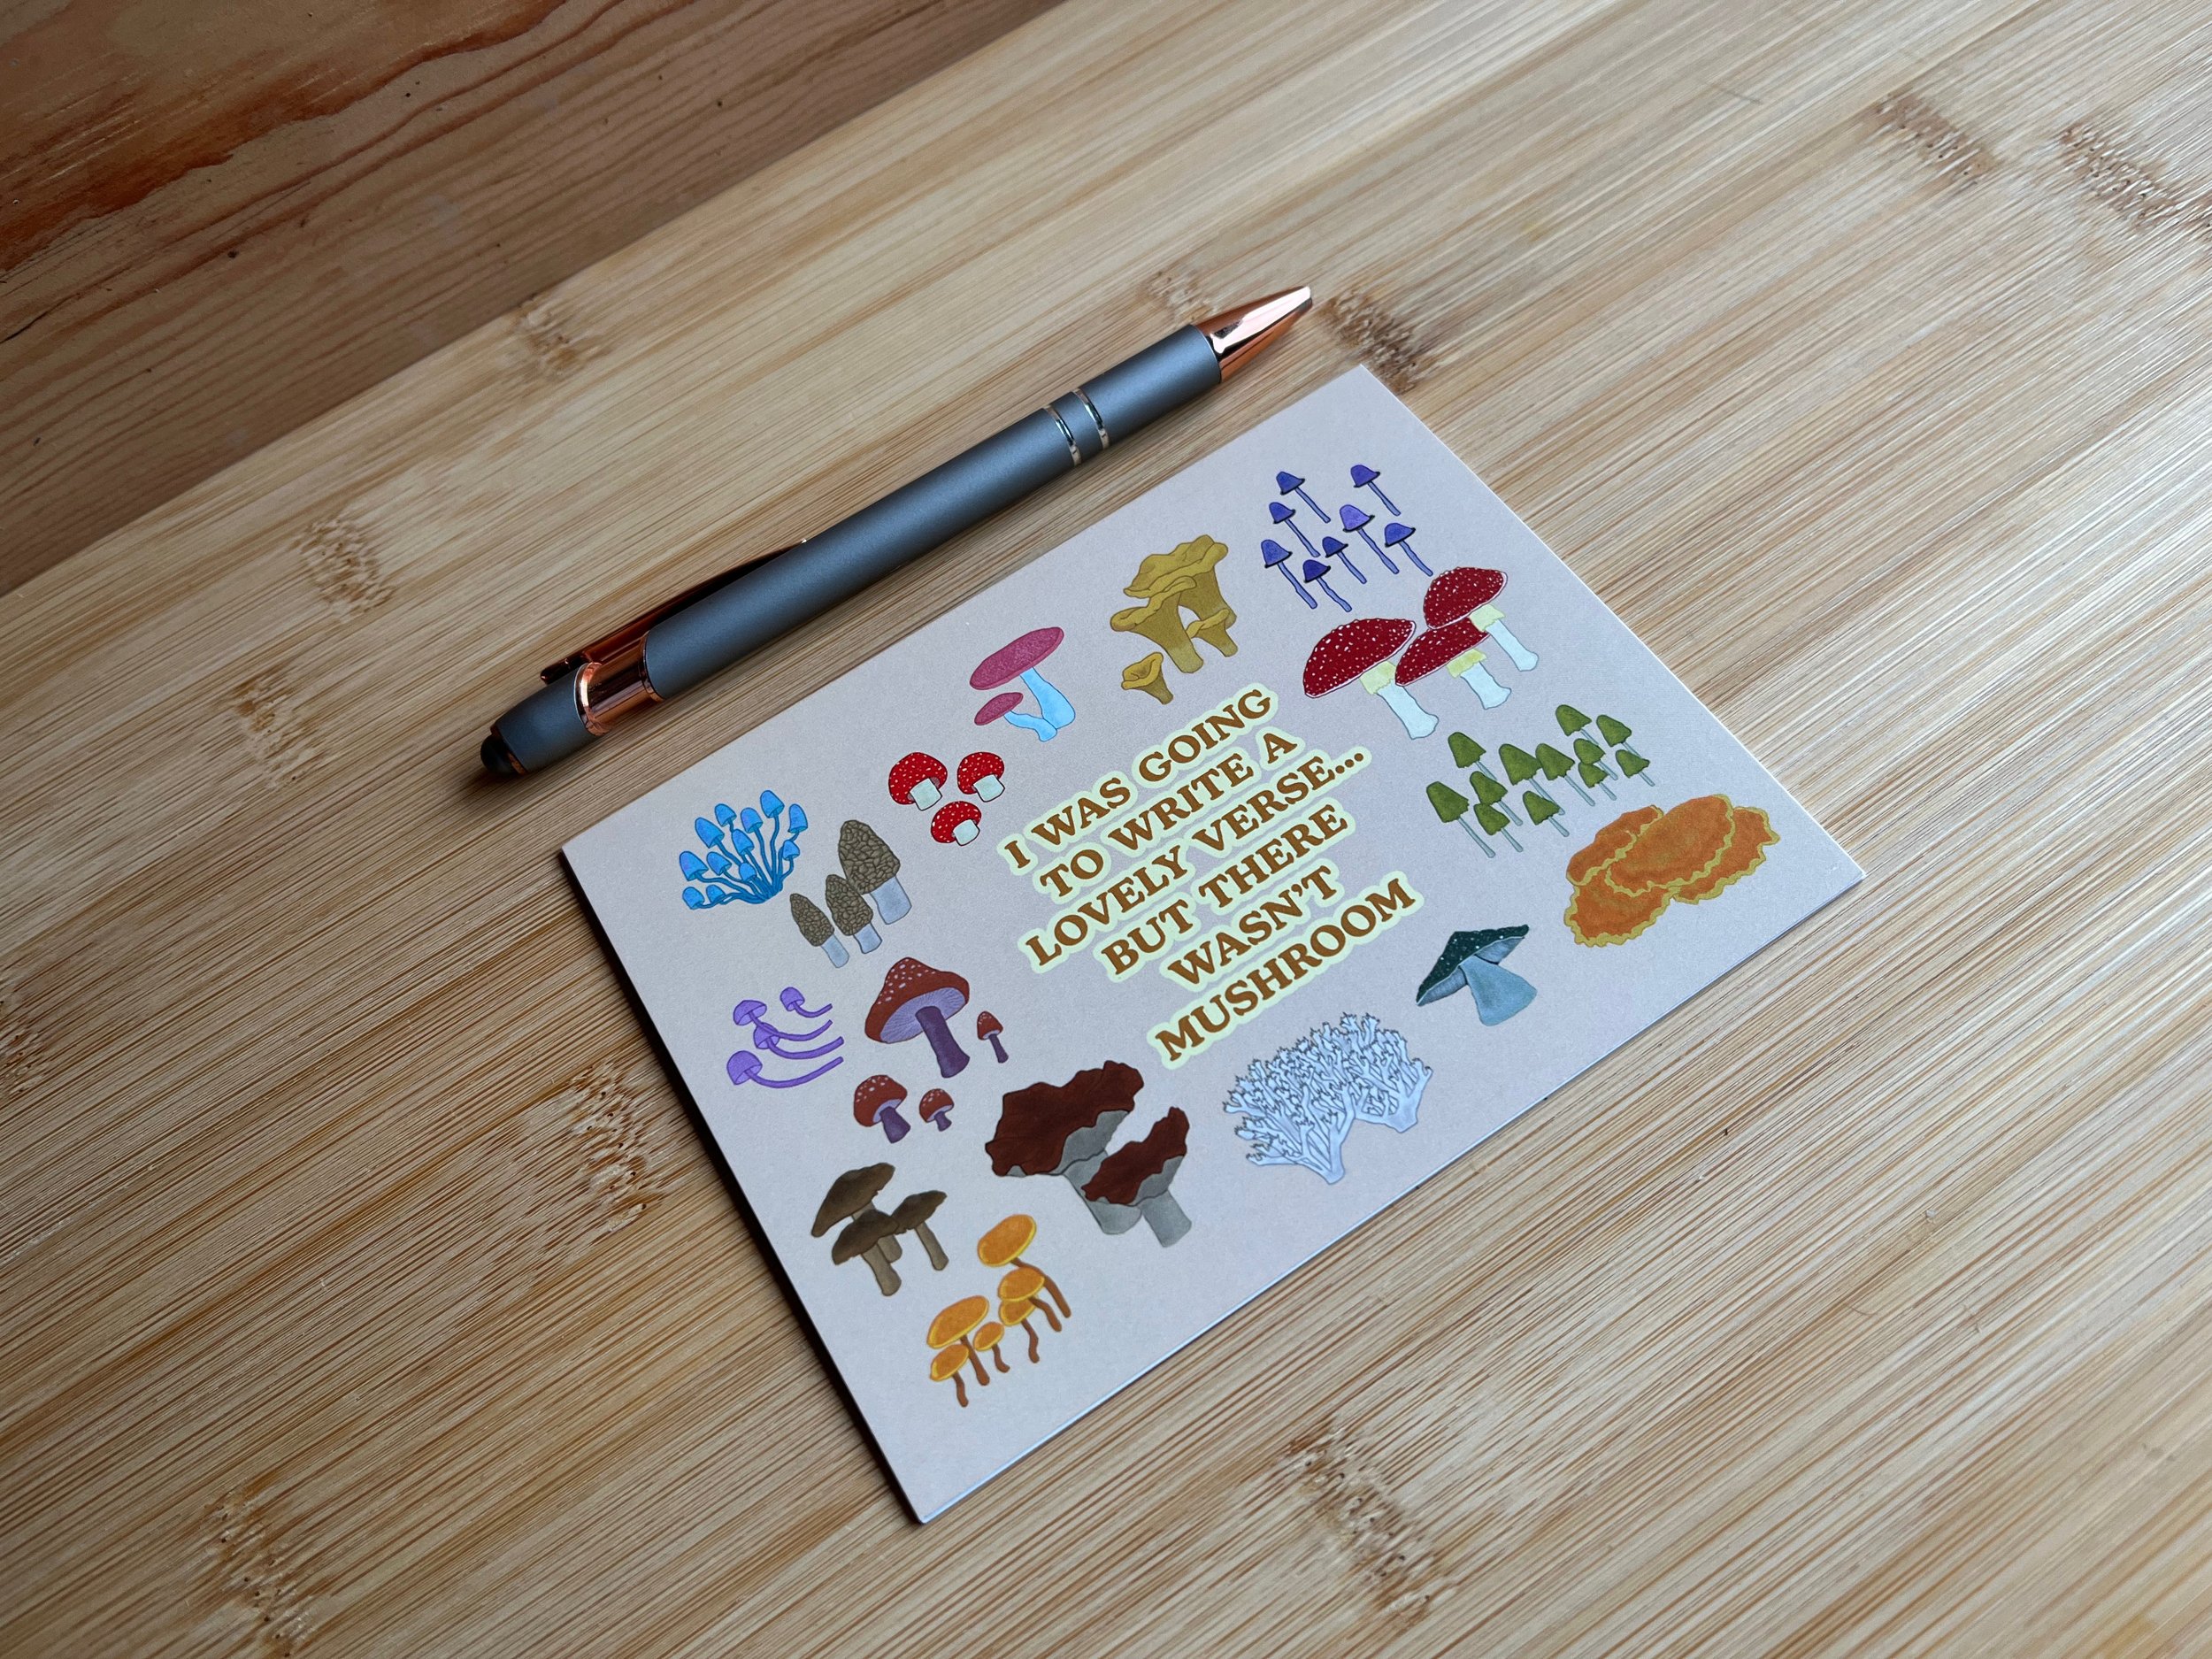 I WAS GOING
TO WRITE A
LOVELY VERSE...
BUT THERE
WASN'T
MUSHROOM